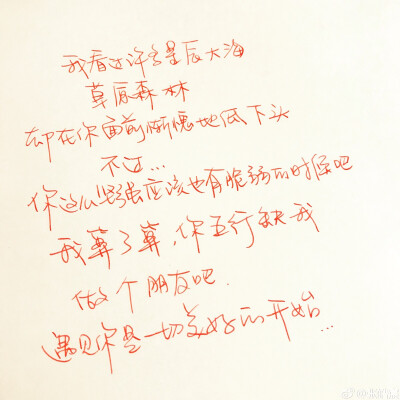 我看过许多星辰大海
草原森林
却在你面前惭愧地低下头
不过...
你这么坚强应该也有脆弱的时候吧
我算了算，你五行缺我
做个朋友吧.
遇见你是一切美好的开始...